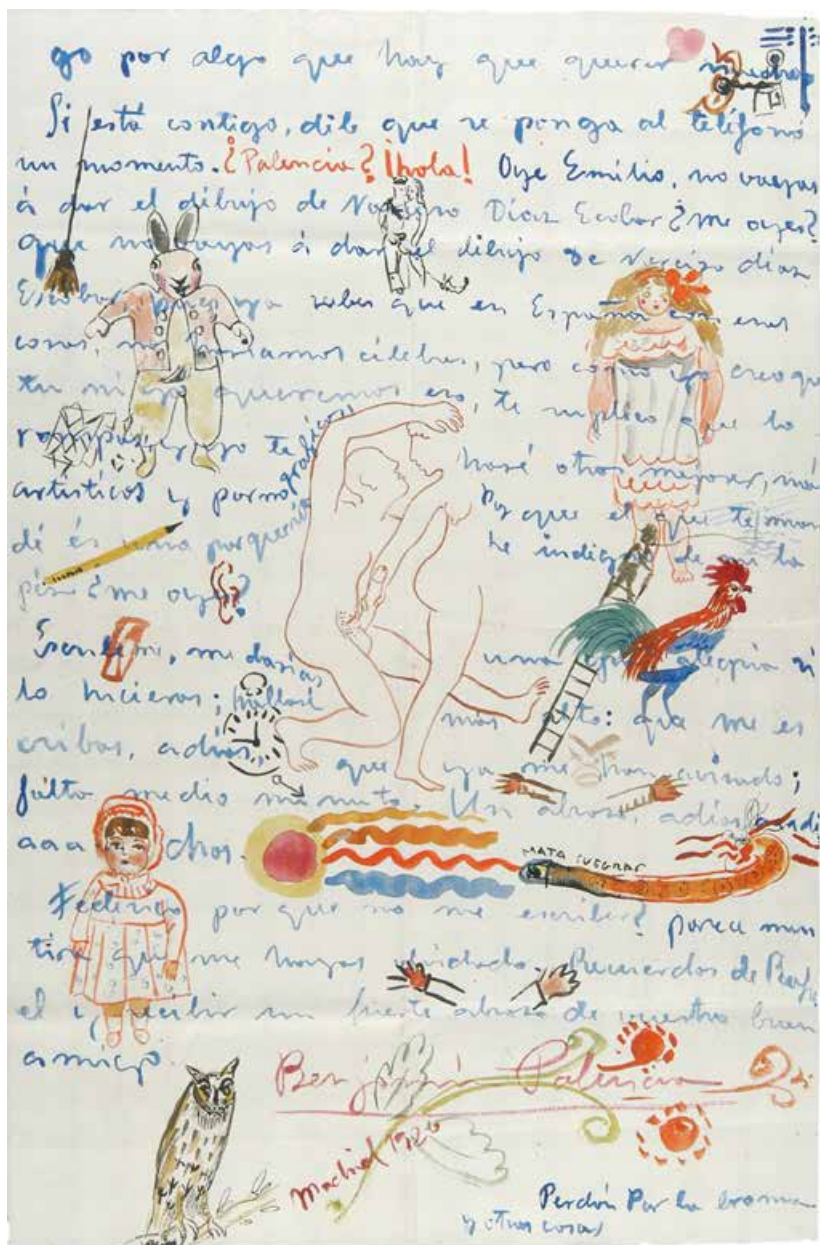 go por algo que hay que querer mucho
Si está contigo, dile que se ponga al teléfono
un momento. ¿Palencia? ¡hola! Oye Emilio, no vayas
á dar el dibujo de Narciso Díaz Escobar ¿me oyes?
que no vayas á dar el dibujo de Narciso díaz
Escobar pues ya sabes que en España con esas
cosas, no seriamos célebres, pero como yo creo que
tu ni yo queremos eso, te suplico que lo
rompas, y yo te haré otros mejores, más
artísticos y pornográficos Por que el que te man
dé és una porquería he indigno de mi lá
piz ¿me oyes?
Escribeme, me darías una gran alegria si
lo hicieras; mas alto: que me es
cribas, adios, que ya me han avisado;
falta medio minuto. Un abrazo, adios
aaa chos.
MATA SUEGRAS
Federigo por que no me escribes? parece men
tira que me hayas olvidado. Recuerdos de Rafa
el y recibir un fuerte abrazo de vuestro buen
amigo
Benjamín Palencia
Madrid 1926
Perdón Por la broma
y otras cosas